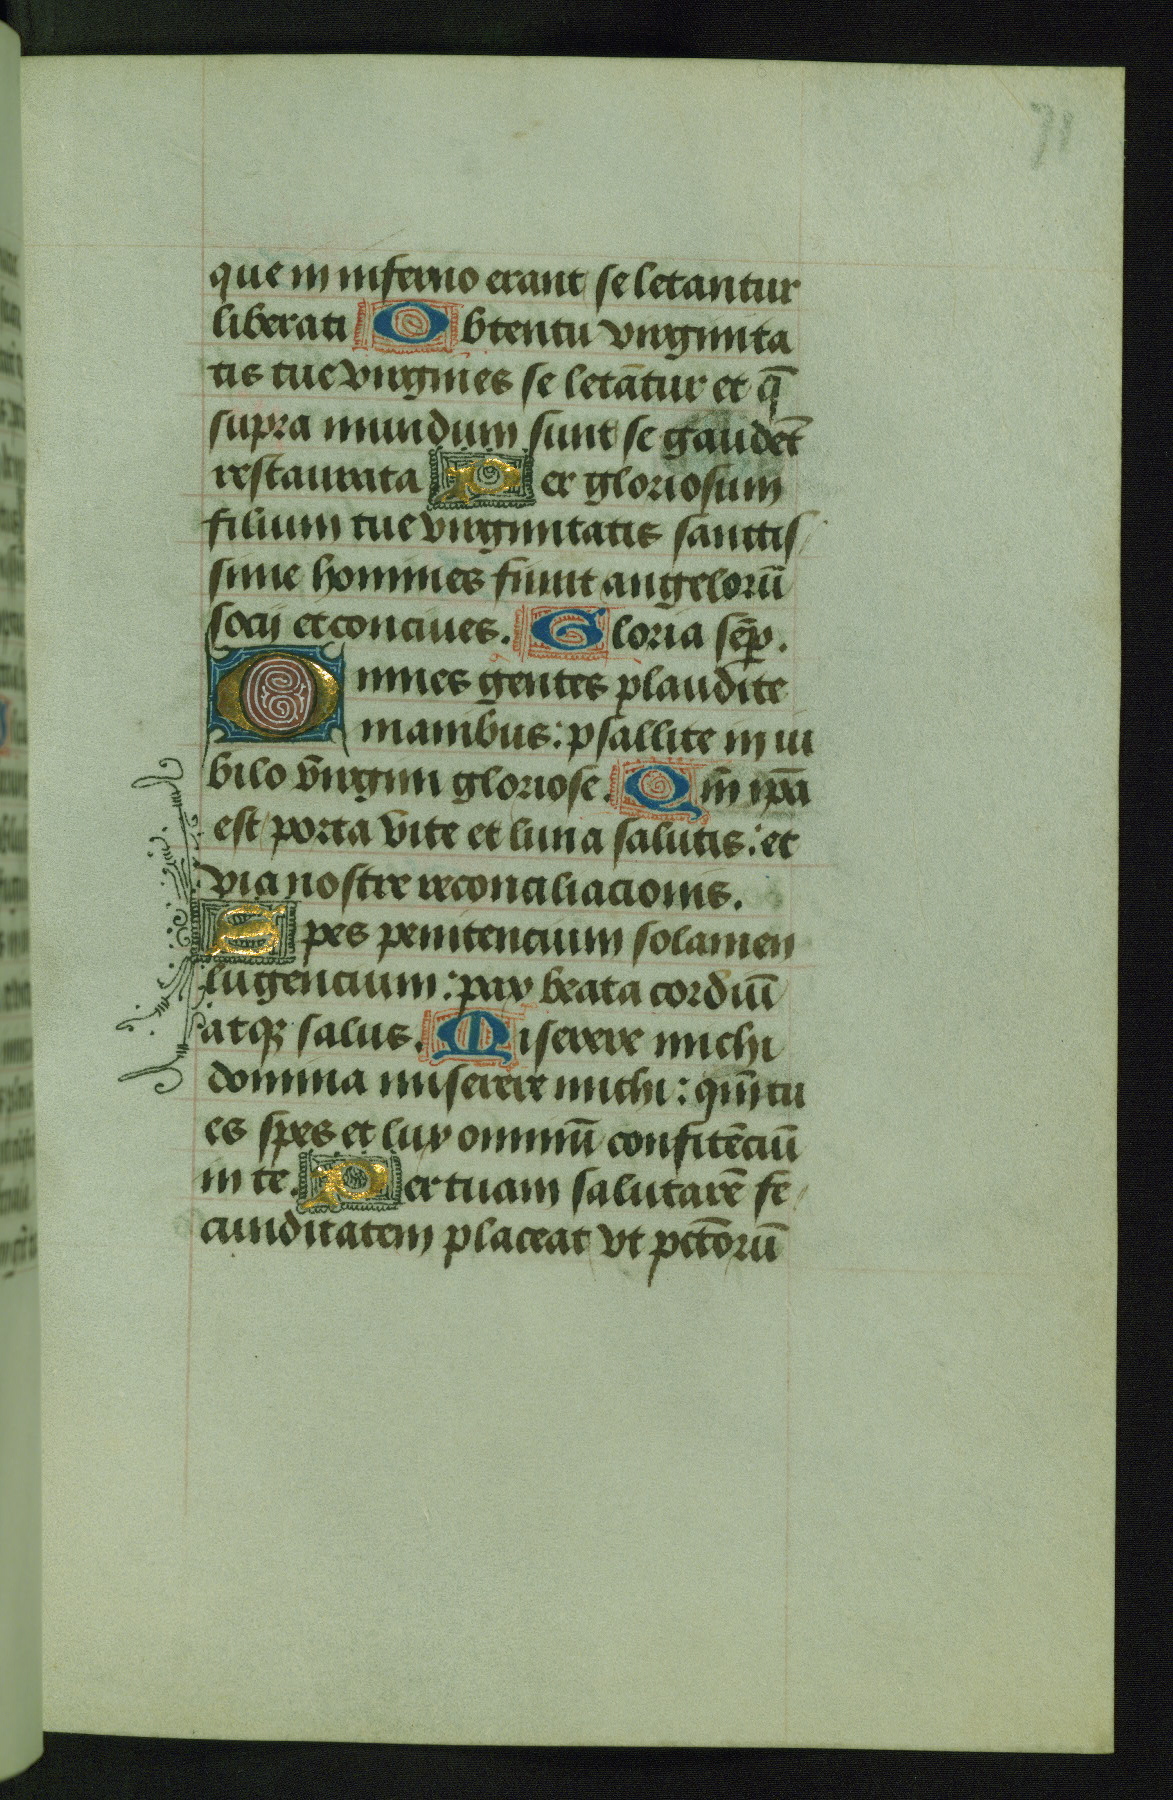 71
que in inferno erant se letantur
liberati Obtentu virginita
tis tue virgines se letātur et q̄
supra mundum sunt se gaudēt
restaurata Per gloriosum
filium tue virginitatis sanctis
sime homines fiunt angelorū
socij et conciues. Gloria sēp.
Omnes gentes plaudite
manibus: psallite in iu
bilo v̄irgini gloriose. Qm̄ ipā
est porta vite et luna salutis: et
via nostre reconciliacionis.
Spes penitencium solamen
lugencium: pax beata cordiū
atqꝫ salus. Miserere michi
domina miserere michi: qm̄ tu
es spes et lux omniū confitēciū
in te. Per tuam salutarē fe
cunditatem placeat vt pctōrū